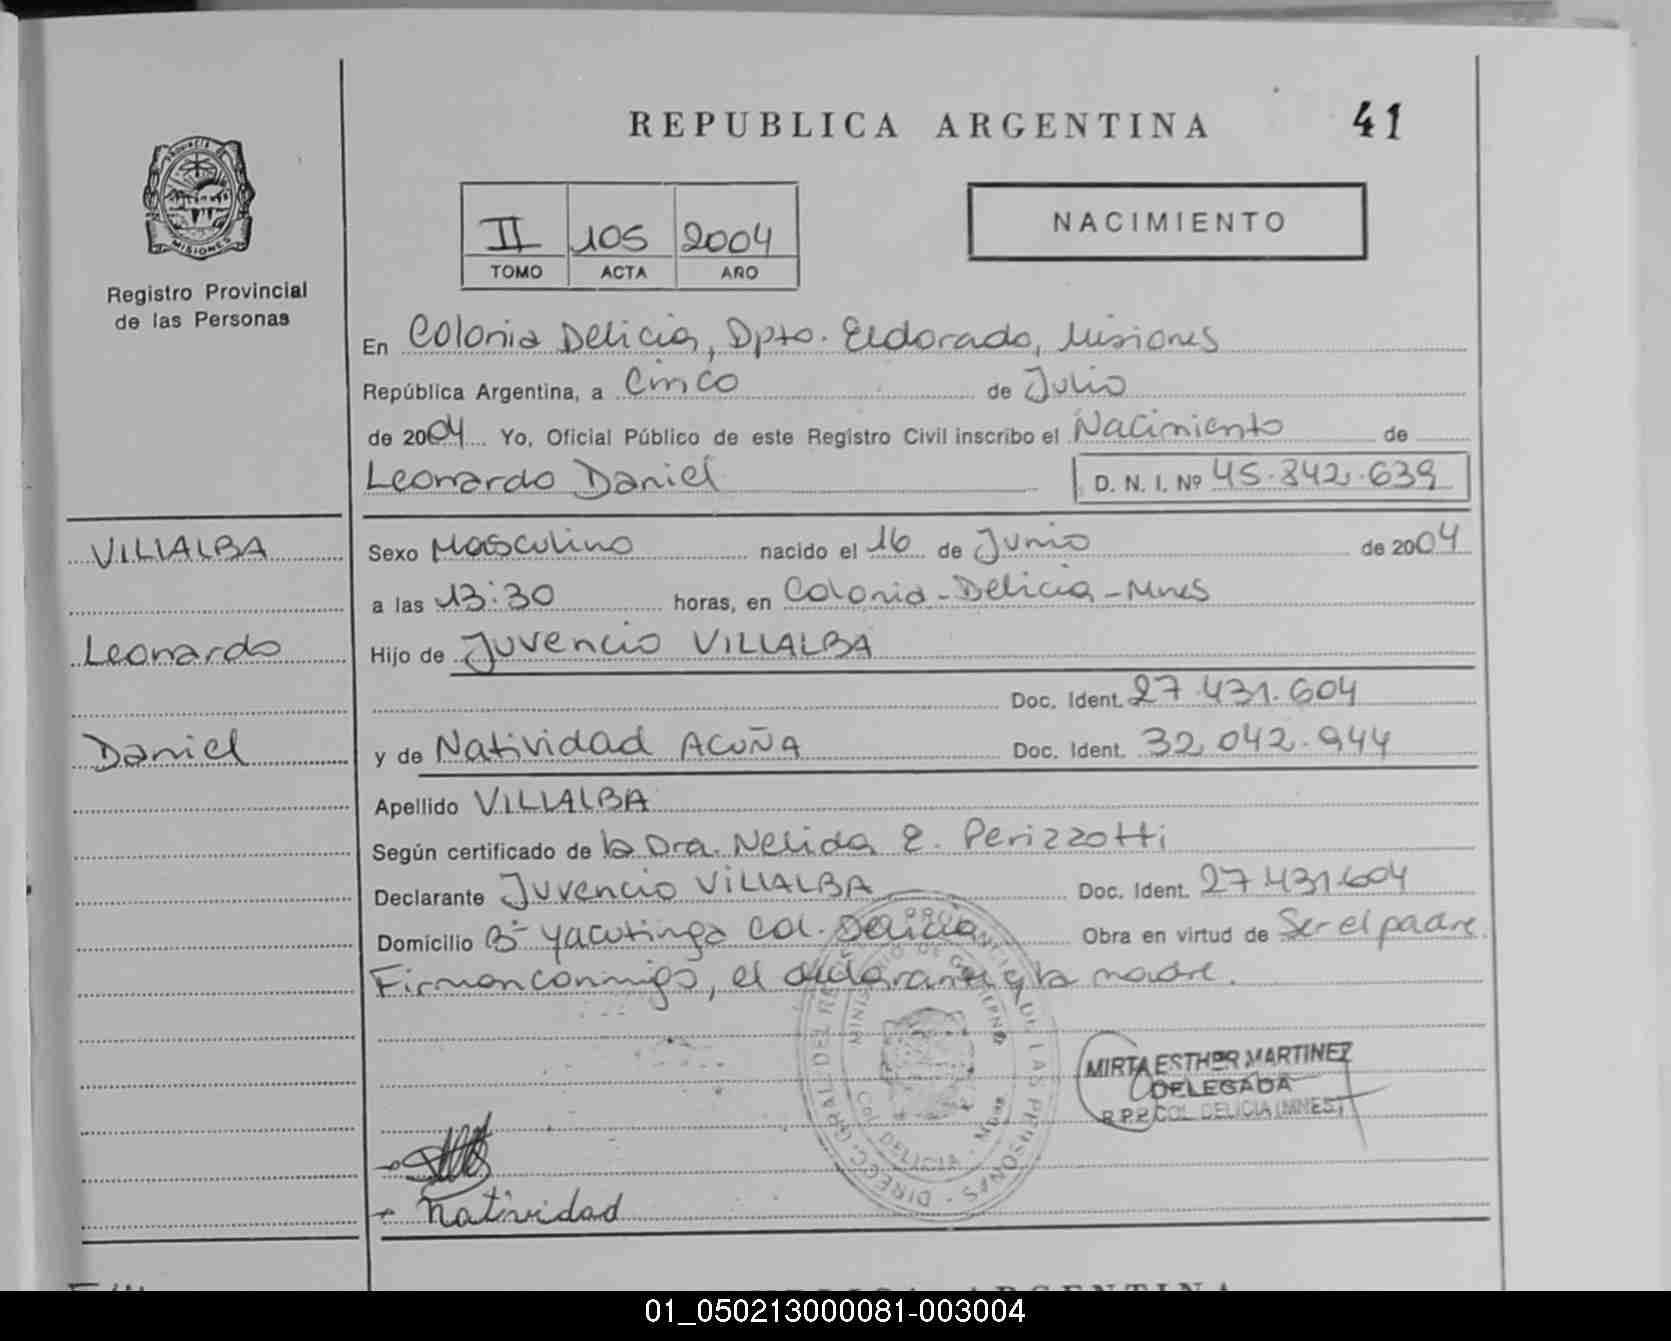 REPUBLICA ARGENTINA
41
PROVINCIA DE
MISIONES
Registro Provincial
de las Personas
II 105 2004
TOMO ACTA AÑO
NACIMIENTO
En Colonia Delicia, Dpto. Eldorado, Misiones
República Argentina, a Cinco de Julio
de 2004 Yo, Oficial Público de este Registro Civil inscribo el Nacimiento de
Leonardo Daniel D. N. I. Nº 45.842.639
VILLALBA
Leonardo
Daniel
Sexo Masculino nacido el 16 de Junio de 2004
a las 13:30 horas, en Colonia-Delicia-Mnes
Hijo de Juvencio VILLALBA
Doc. Ident. 27.431.604
y de Natividad ACUÑA Doc. Ident. 32.042.944
Apellido VILLALBA
Según certificado de la Dra. Nelida E. Perizzotti
Declarante Juvencio VILLALBA Doc. Ident. 27.431.604
Domicilio Bº Yacutinga Col. Delicia Obra en virtud de Ser el padre.
Firman conmigo, el declarante y la madre.
MIRTA ESTHER MARTINEZ
DELEGADA
R.P.P. COL. DELICIA (MNES)
COL. DELICIA - Mnes
- Natividad
REPUBLICA ARGENTINA
01_050213000081-003004